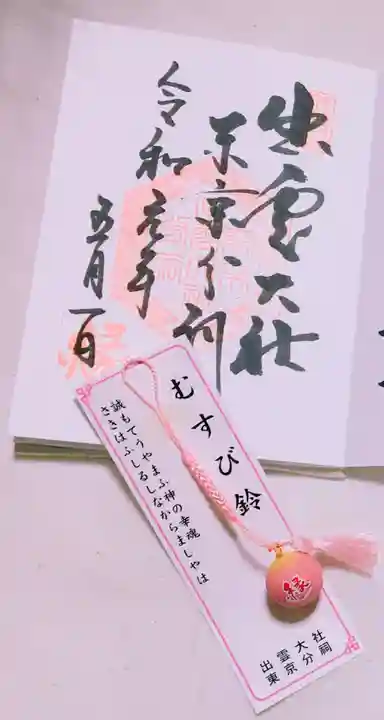 出雲大社
東京分祠
令和元年
五月一日
むすび鈴
誠もてうやまふ神の幸魂
さきはふしるしなからましやは
縁
出雲大社
東京分祠